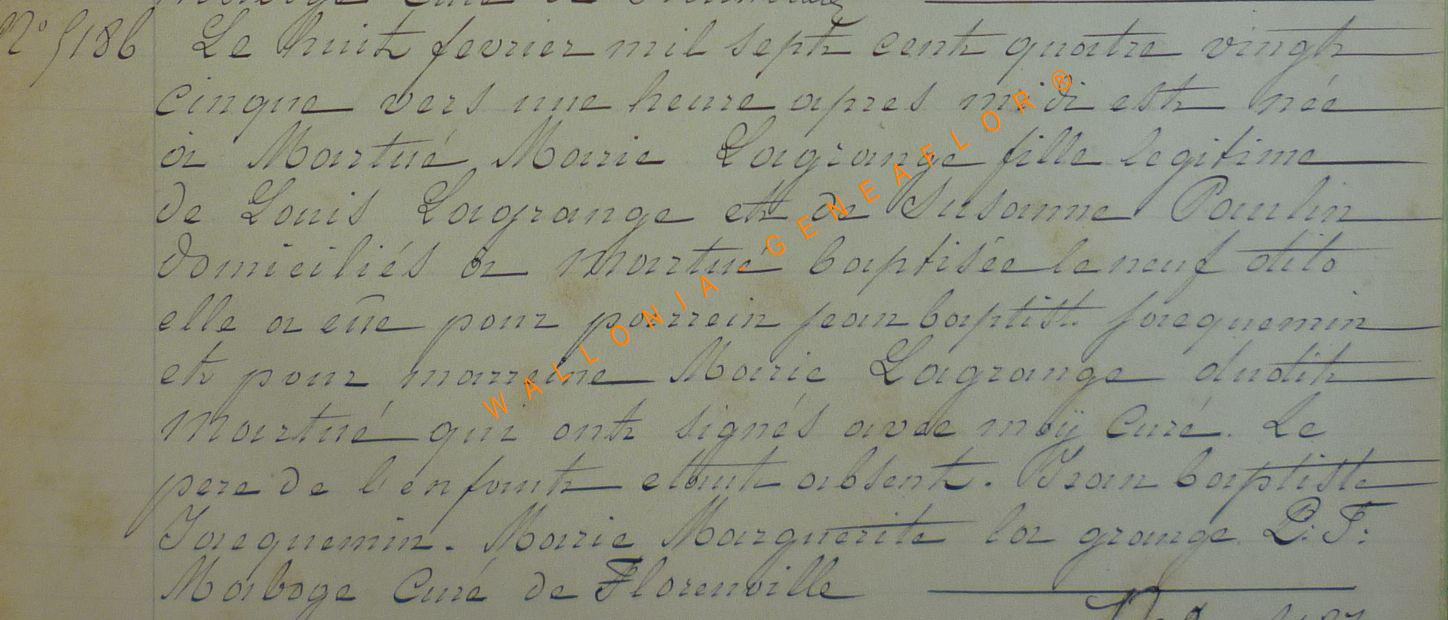 Maboge curé de Florenville
N° 5186 Le huit fevrier mil sept cent quatre vingt
cinque vers une heure apres midi est née
a Martué Marie Lagrange fille legitime
de Louis Lagrange et de Susanne Paulin
domiciliés a Martué baptisée le neuf dito
elle a eüe pour parrein jean baptist. jacquemin
et pour marreine Marie Lagrange dudit
Martué qui ont signés avec moÿ Curé. Le
pere de l'enfant etant absent. Jean baptiste
Jacquemin. Marie Marguerite la grange. P. F:
Maboge Curé de Florenville
WALLONIA GENEAFLOR®